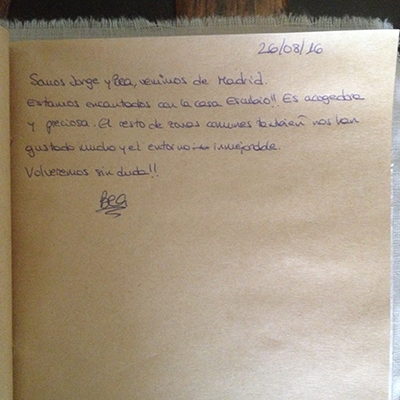 26/08/16
Somos Jorge y Bea, venimos de Madrid.
Estamos encantados con la casa !! Es acogedora
y preciosa. El resto de zonas comunes también nos han
gustado mucho y el entorno inmejorable.
Volveremos sin duda!!
Bea